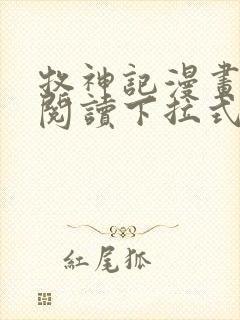 牧神記漫畫
閱讀下拉式
紅尾狐